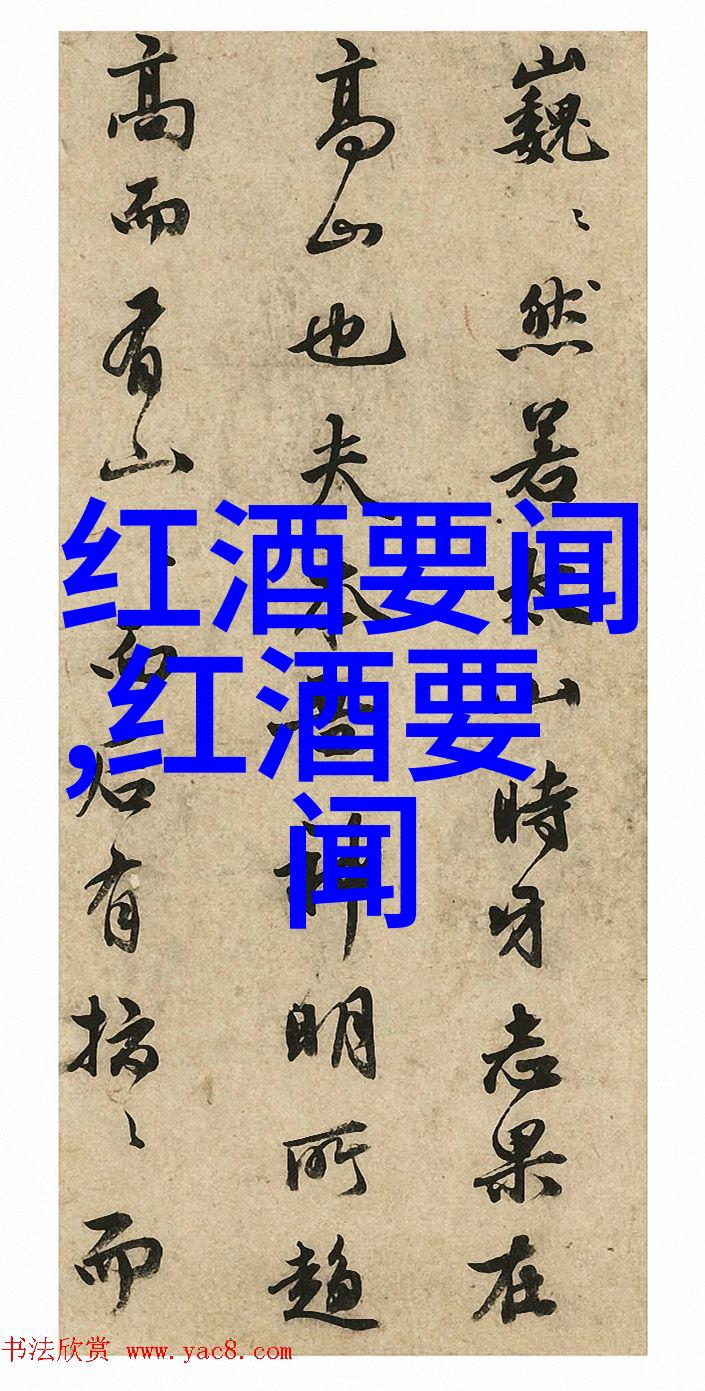 巍〻然若山時牙志果在
高山也夫明所趨
高而有山而有而
红酒要闻
,红酒要
闻
书法欣赏 www.yac8.com